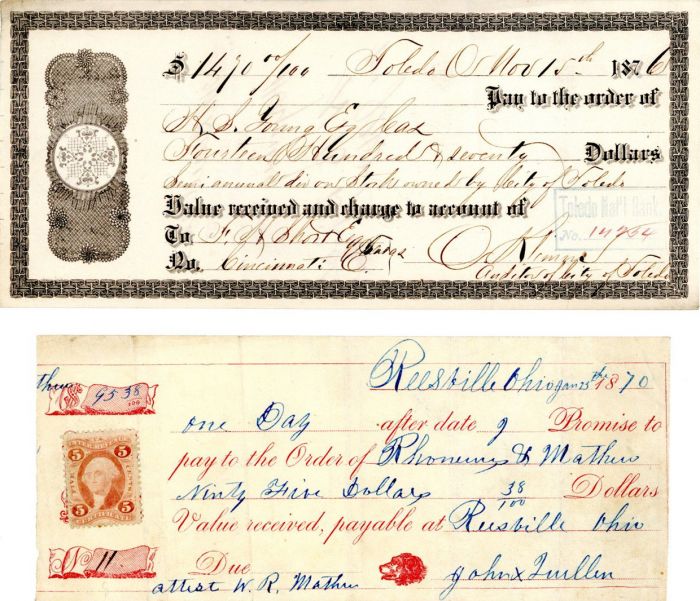 $ 1470 00/100 Toledo O Nov 15th 1876
Pay to the order of
H. S. Young Esq Cas
Fourteen Hundred & seventy Dollars
Semi annual div on Stock owned by City of Toledo
Value received and charge to account of
Toledo Nat'l Bank
No. 14764
To F. H. Short Esq
No. Cincinnati O.
Auditor of City of Toledo
Reesville Ohio Jan 25th 1870
95 38/100
one Day after date I Promise to
pay to the Order of Rhonemus & Mathew
Ninty Five Dollars 38/100 Dollars
Value received, payable at Reesville Ohio
5 5
5 5
No 11 Due
John x Quillen
attest W. R. Mathew